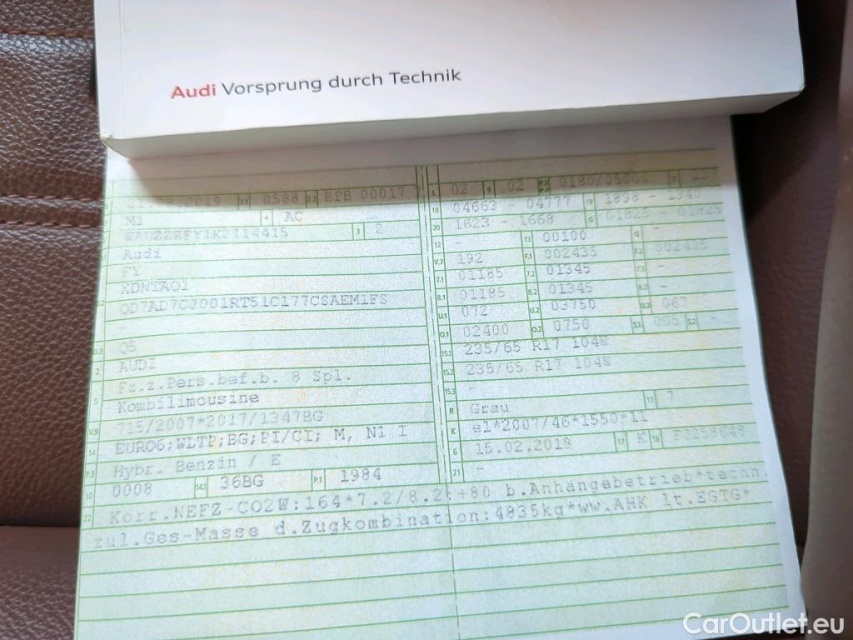 Audi Vorsprung durch Technik
.2019 0588 BPB 00017 02 02
M1 AC 04663 - 04777 1898 -
2 1623 - 1668 01825 - 01825
Audi - 00100 -
FY 192 002435 002435
XDNTAQ1 01185 01345 -
QD7AD7CJ001RT51C177CSAEM1FS 01185 01345 -
- 072 03750 067
Q5 02400 0750 005 -
AUDI 235/65 R17 104W
Fz.z.Pers.bef.b. 8 Spl. 235/65 R17 104W
Kombilimousine -
715/2007*2017/1347BG Grau 7
EURO6;WLTP;BG;PI/CI; M, N1 I e1*2007/46*1550*11
Hybr. Benzin / E 15.02.2019 K
0008 36BG 1984 -
Korr.NEFZ-CO2W:164*7.2/8.2:+80 b.Anhängebetrieb*techn.
zul.Ges-Masse d.Zugkombination:4835kg*ww.AHK lt.EGTG*
CarOutlet.eu